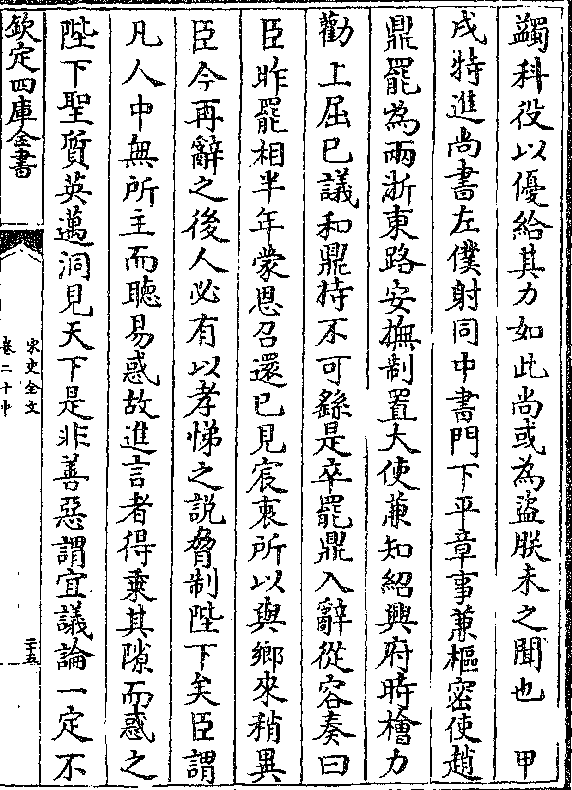 蠲科役以優給其力如此尚或為盜朕未之聞也　甲
戌特進尚書左僕射同中書門下平章事兼樞密使趙
鼎罷為兩浙東路安撫制置大使兼知紹興府時檜力
勸上屈已議和鼎持不可繇是卒罷鼎入辭從容奏曰
臣昨罷相半年蒙恩召還已見宸衷所以與鄉來稍異
臣今再辭之後人必有以孝悌之說脅制陛下矣臣謂
凡人中無所主而聽易惑故進言者得乗其隙而惑之
陛下聖質英邁洞見天下是非善惡謂宜議論一定不
欽定四庫全書
宋史全文
卷二十中
二十五